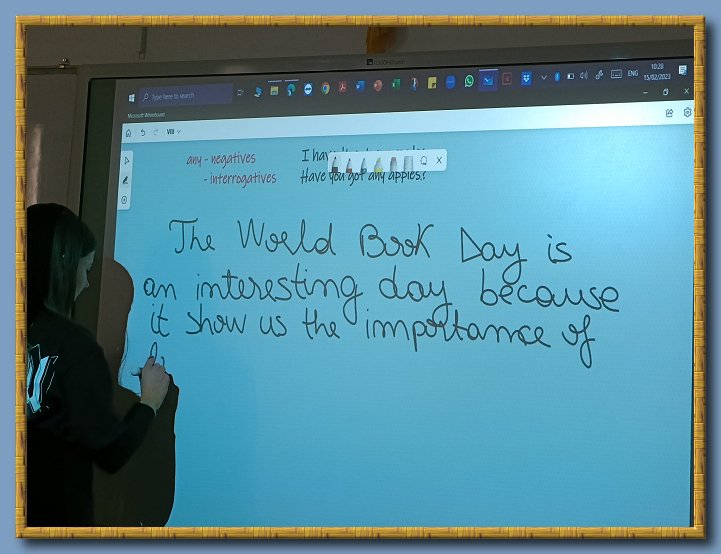 Type here to search
ENG
10:28
15/02/2023
Microsoft Whiteboard
VIII
any - negatives
- interrogatives
I have
Have you got any apples?
The World Book Day is
an interesting day because
it show us the importance of